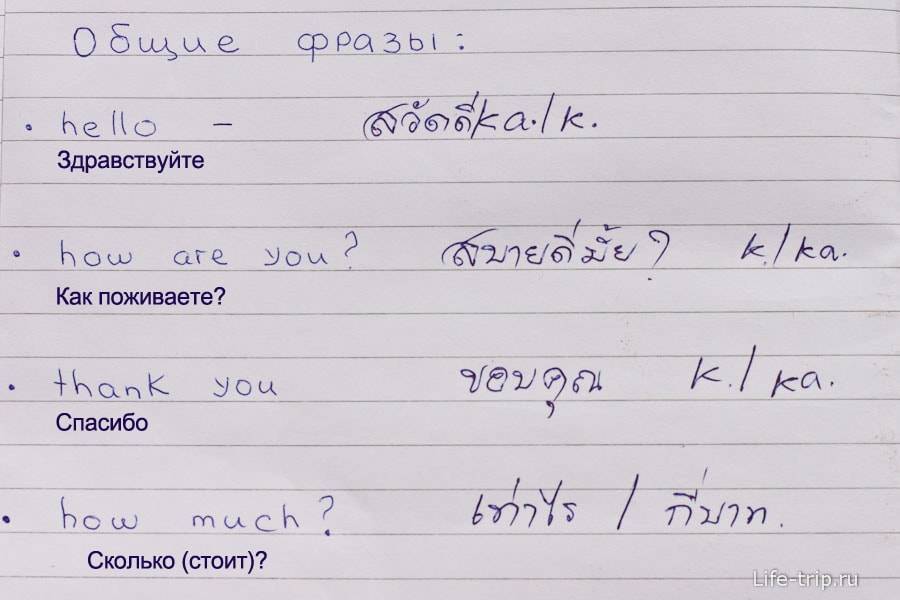 Общие фразы:
• hello – สวัดดี/ka./k.
Здравствуйте
• how are you? สบายดีมั้ย? k./ka.
Как поживаете?
• thank you ขอบคุณ k./ka.
Спасибо
• how much? เท่าไร / กี่บาท.
Сколько (стоит)?
Life-trip.ru